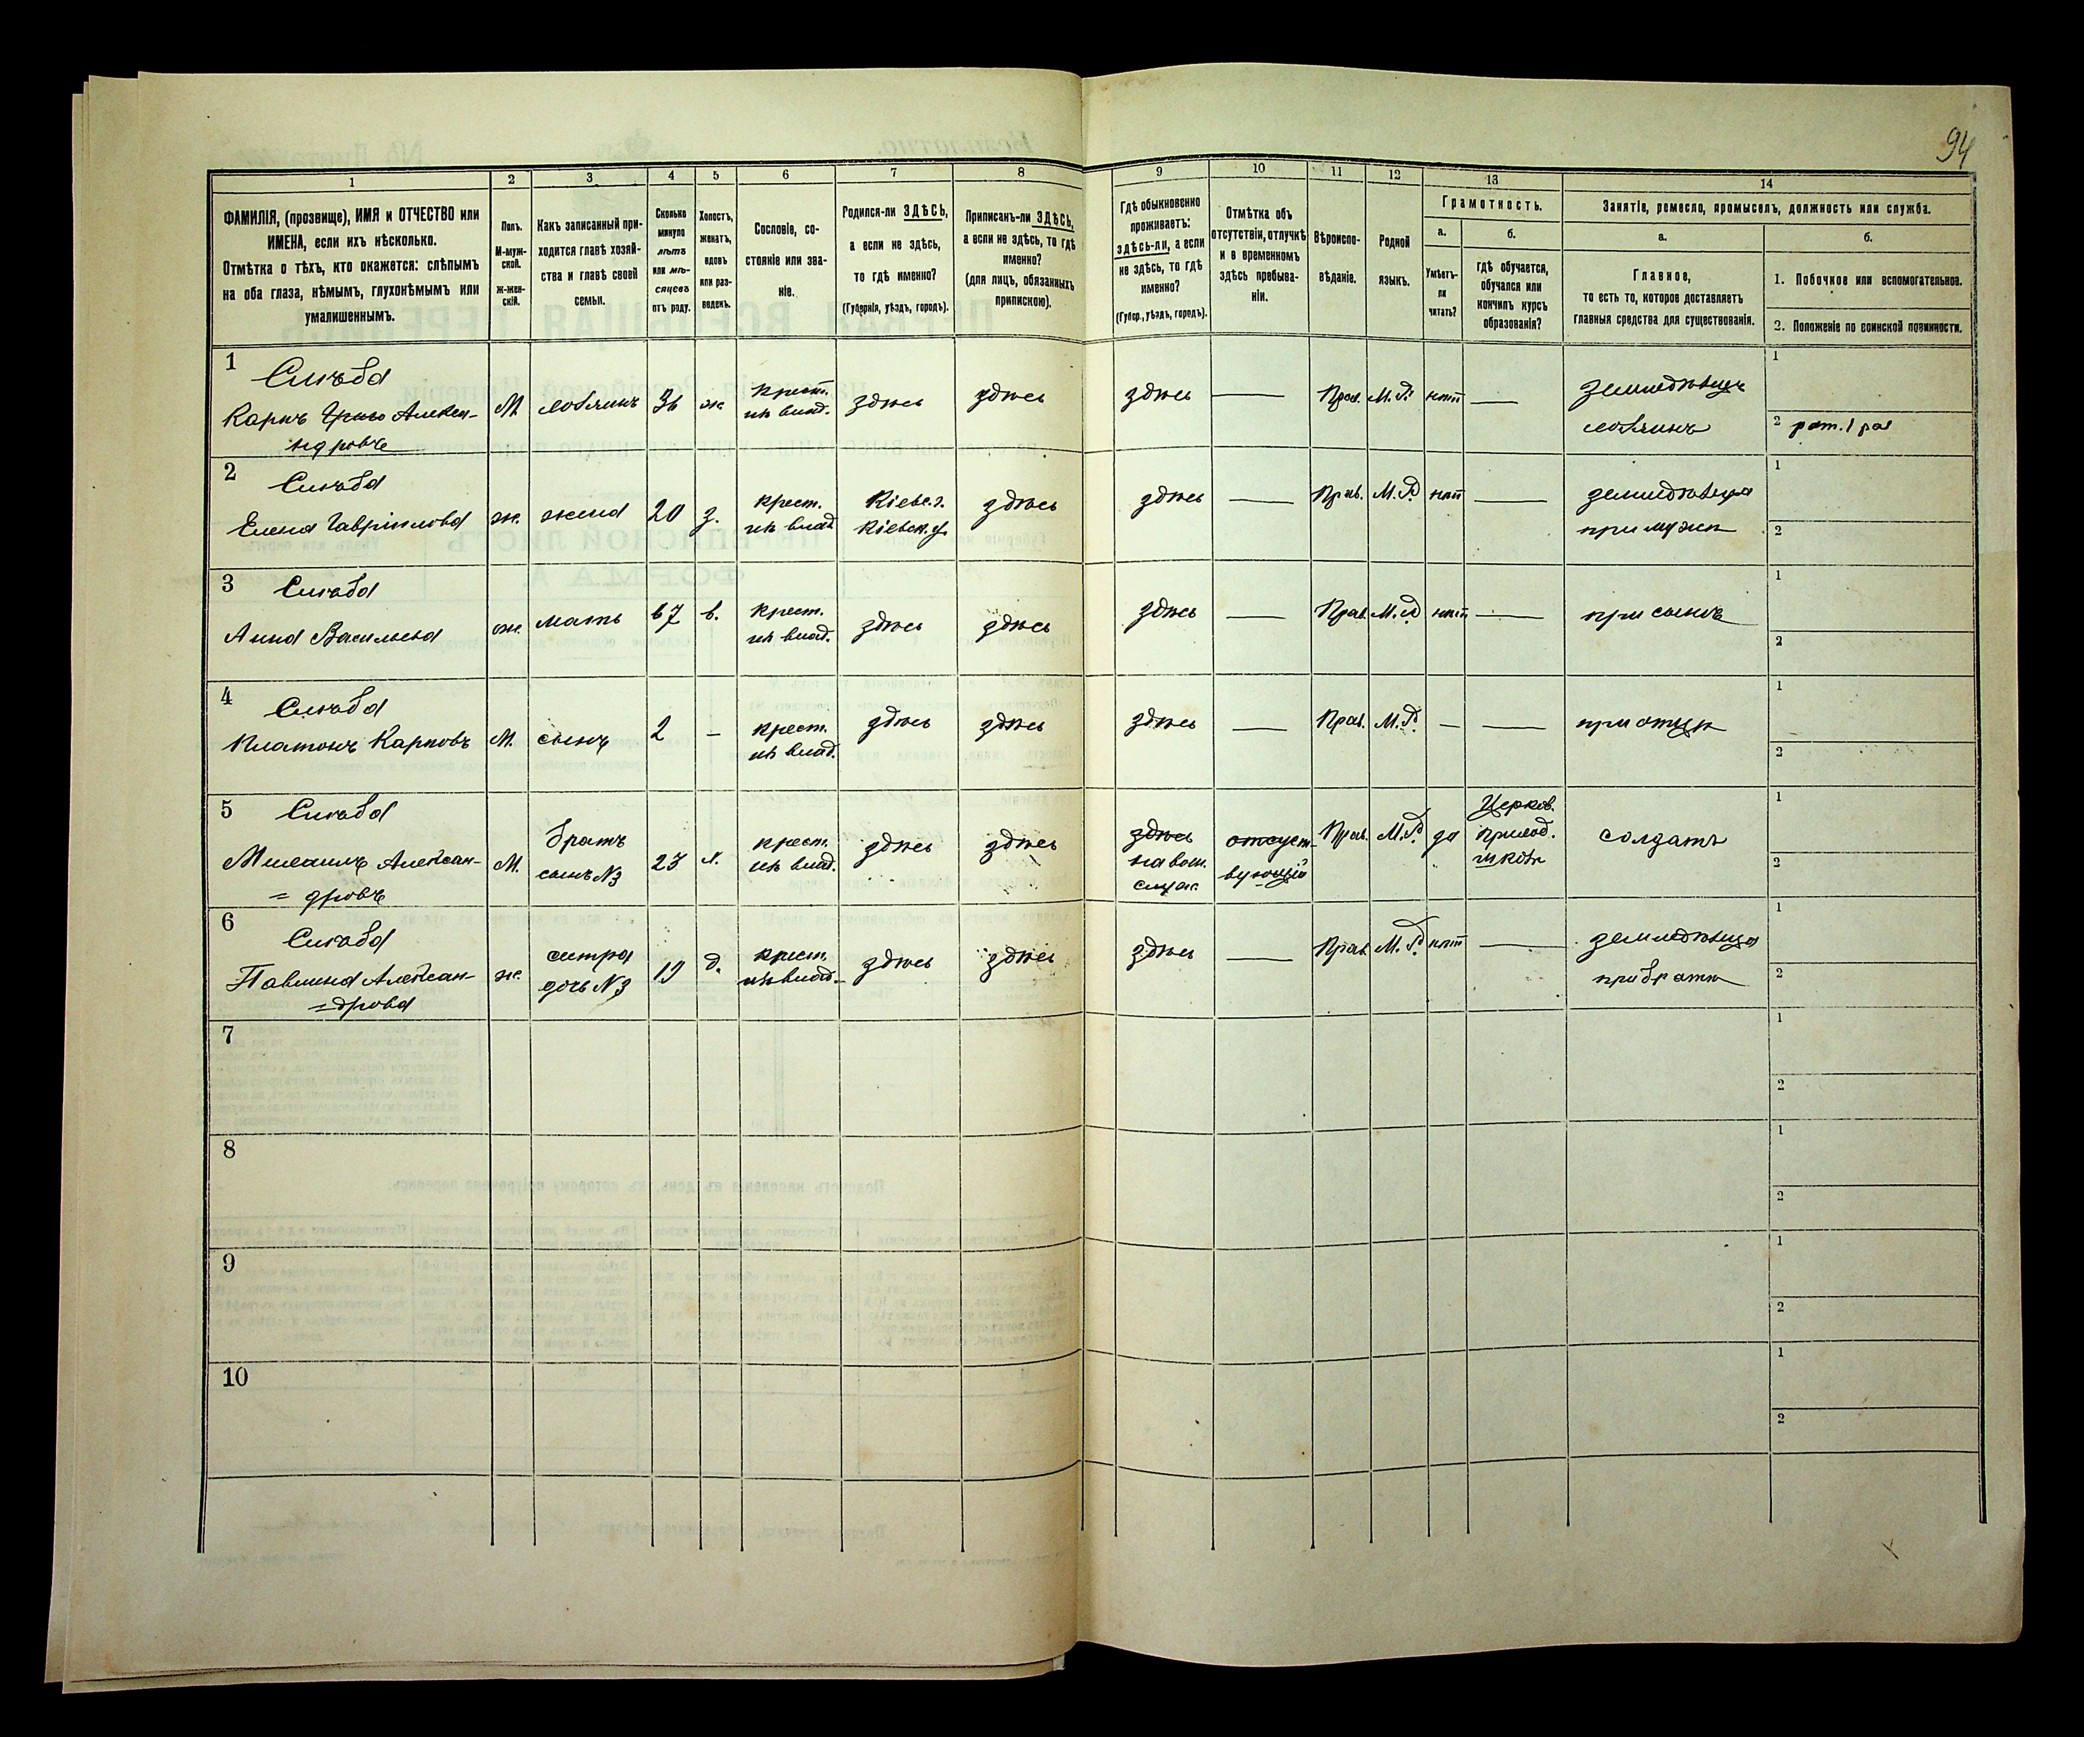 94
1 2 3 4 5 6 7 8 9 10 11 12 13 14
ФАМИЛІЯ, (прозвище), ИМЯ и ОТЧЕСТВО или
ИМЕНА, если ихъ нѣсколько.
Отмѣтка о тѣхъ, кто окажется: слѣпымъ
на оба глаза, нѣмымъ, глухонѣмымъ или
умалишеннымъ.
Полъ.
М-муж-
ской.
ж-жен-
скій.
Какъ записанный при-
ходится главѣ хозяй-
ства и главѣ своей
семьи.
Сколько
минуло
лѣтъ
или мѣ-
сяцевъ
отъ роду.
Холостъ,
женатъ,
вдовъ
или раз-
веденъ.
Сословіе, со-
стояніе или зва-
ніе.
Родился-ли ЗДѢСЬ,
а если не здѣсь,
то гдѣ именно?
(Губернія, уѣздъ, городъ).
Приписанъ-ли ЗДѢСЬ,
а если не здѣсь, то гдѣ
именно?
(для лицъ, обязанныхъ
припискою).
Гдѣ обыкновенно
проживаетъ:
здѣсь-ли, а если
не здѣсь, то гдѣ
именно?
(Губер., уѣздъ, городъ).
Отмѣтка объ
отсутствіи, отлучкѣ
и о временномъ
здѣсь пребыва-
ніи.
Вѣроиспо-
вѣданіе.
Родной
языкъ.
Грамотность.
а.
Умѣетъ-
ли
читать?
б.
гдѣ обучается,
обучался или
кончилъ курсъ
образованія?
Занятіе, ремесло, промыселъ, должность или служба.
а.
Главное,
то есть то, которое доставляетъ
главныя средства для существованія.
б.
1. Побочное или вспомогательное.
2. Положеніе по воинской повинности.
1
Карпъ Алекса-
ндровъ
М. хозяинъ 36 ж крест. здѣсь здѣсь здѣсь — Прав. М. Р. нѣтъ —
из влад.
земледѣлецъ
хозяинъ
1
2 рат. 1 раз
2
Елена Гавріилова
ж. жена 20 з. крест. Кіевс. г. здѣсь здѣсь — Прав. М. Р. нѣтъ —
из влад. Кіевск. у.
земледѣлица
при мужѣ
1
2
3
Анна Васильева
ж. мать 67 в. крест. здѣсь здѣсь здѣсь — Прав. М. Р. нѣтъ —
из влад.
при сынѣ
1
2
4
Платонъ Карповъ
М. сынъ 2 — крест. здѣсь здѣсь здѣсь — Прав. М. Р. — —
из влад.
при отцѣ
1
2
5
Михаилъ Алексан-
=дровъ
М. братъ 23 х. крест. здѣсь здѣсь здѣсь отсутст- Прав. М. Р. да Церков.
сынъ №3 из влад. на воен. вующій приход.
служ. школѣ
солдатъ
1
2
6
Павлина Алексан-
=дрова
ж. сестра 19 д. крест. здѣсь здѣсь здѣсь — Прав. М. Р. нѣтъ —
дочь №3 из влад.
земледѣлица
при братѣ
1
2
7
1
2
8
1
2
9
1
2
10
1
2